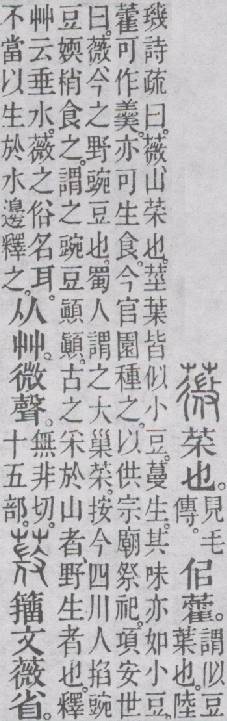 薇菜也。見毛傳。佀藿。謂似豆葉也。陸
璣詩疏曰。薇、山菜也。莖葉皆似小豆。蔓生。其味亦如小豆。
藿可作羹。亦可生食。今官園種之。以供宗廟祭祀。項安世
曰。薇、今之野豌豆也。蜀人謂之大巢菜。按今四川人掐豌
豆媆梢食之。謂之豌豆顚顚。古之采於山者、野生者也。釋
艸云垂水。薇之俗名耳。不當以生於水邊釋之。从艸。微聲。無非切。十五部。𧃸籒文薇省。